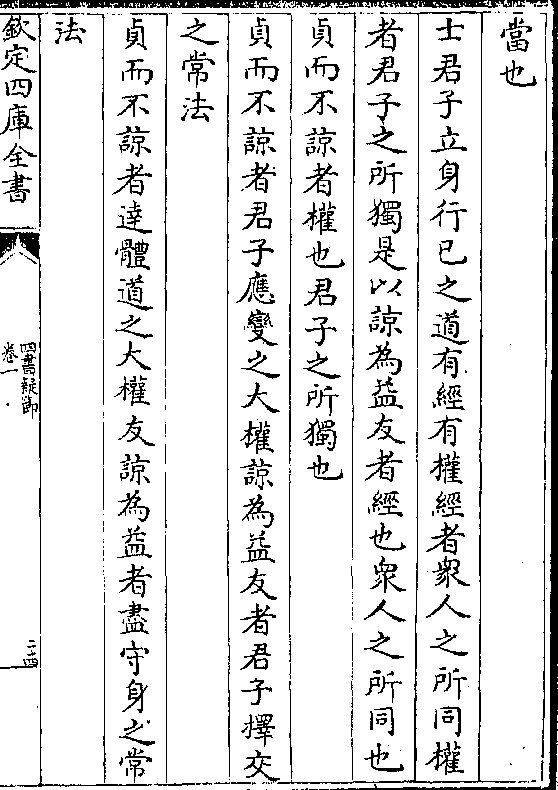 當也
士君子立身行已之道有經有權經者衆人之所同權
者君子之所獨是以諒為益友者經也衆人之所同也
貞而不諒者權也君子之所獨也
貞而不諒者君子應變之大權諒為益友者君子擇交
之常法
貞而不諒者達體道之大權友諒為益者盡守身之常
法
欽定四庫全書
四書疑節
卷一
二十四